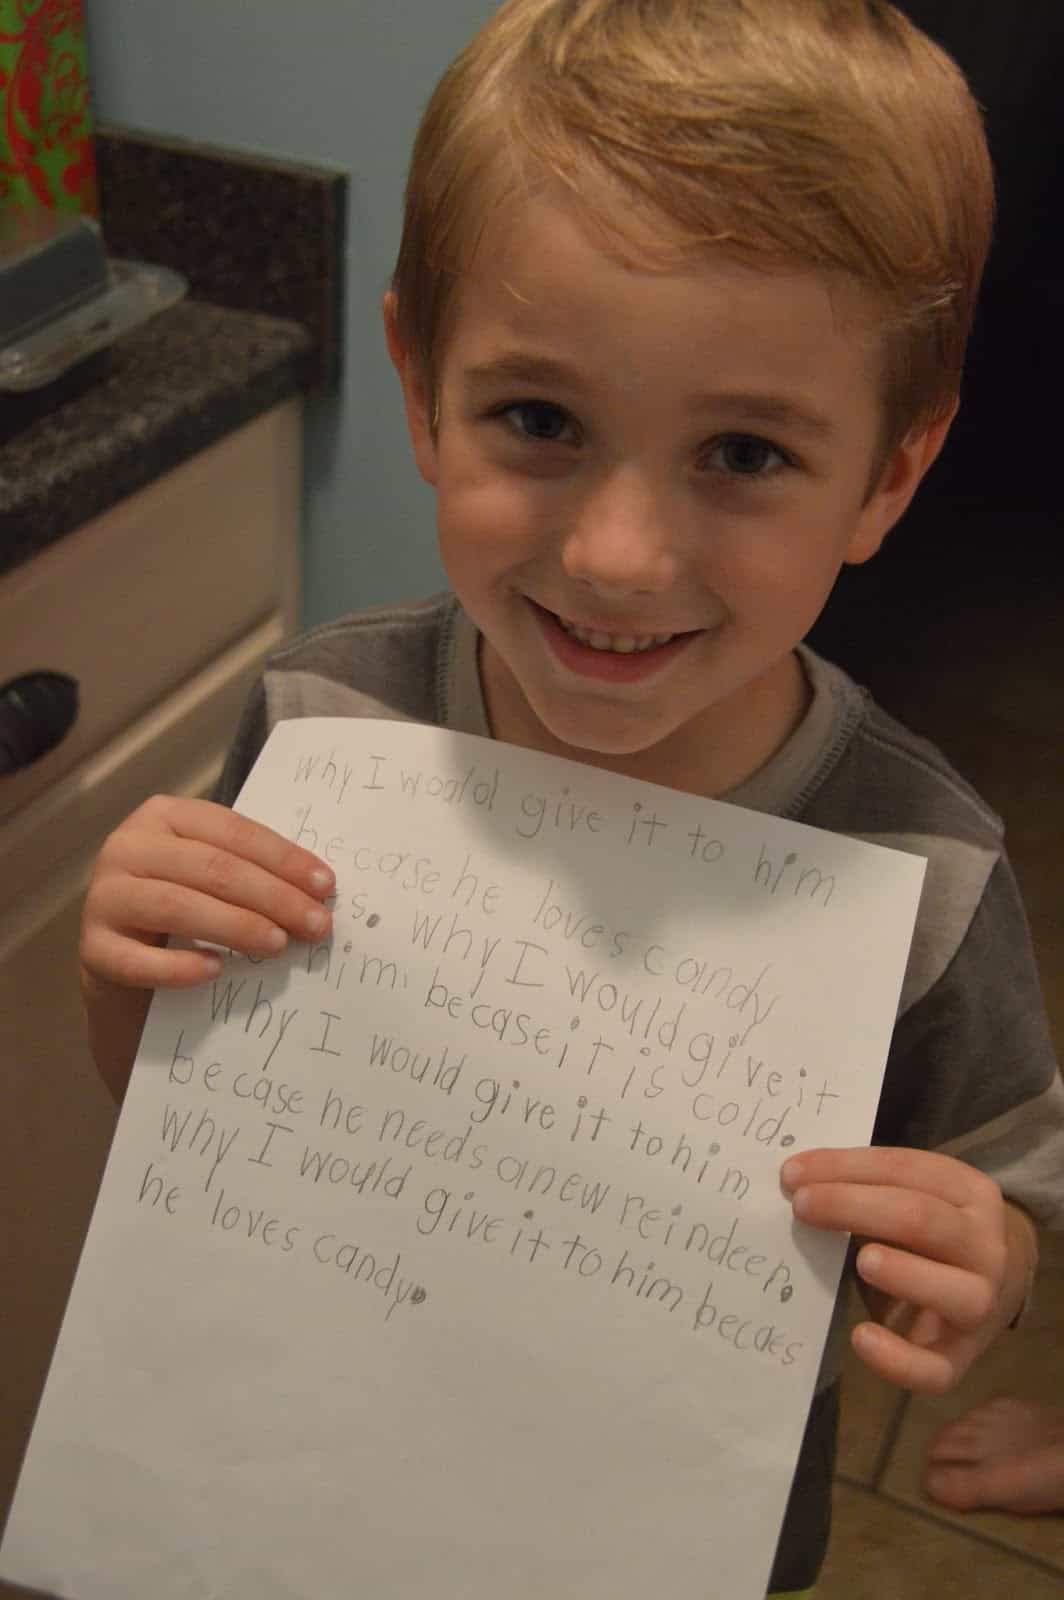 Why I would give it to him
becase he loves candy
s. Why I would give it
him. becase it is cold.
Why I would give it to him
becase he needs a new reindeer.
Why I would give it to him becaes
he loves candy.